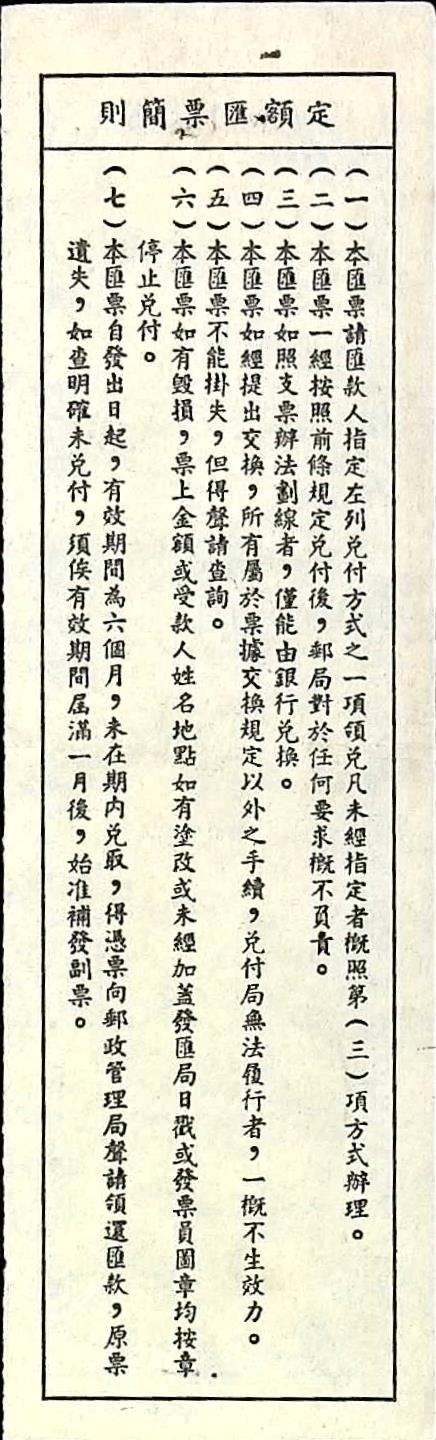 定額匯票簡則
(一)本匯票請匯款人指定左列兌付方式之一項領兌凡未經指定者概照第(三)項方式辦理。
(二)本匯票一經按照前條規定兌付後，郵局對於任何要求概不負責。
(三)本匯票如照支票辦法劃線者，僅能由銀行兌換。
(四)本匯票如經提出交換，所有屬於票據交換規定以外之手續，兌付局無法履行者，一概不生效力。
(五)本匯票不能掛失，但得聲請查詢。
(六)本匯票如有毀損，票上金額或受款人姓名地點如有塗改或未經加蓋發匯局日戳或發票員圖章均按章
停止兌付。
(七)本匯票自發出日起，有效期間為六個月，未在期內兌取，得憑票向郵政管理局聲請領還匯款，原票
遺失，如查明確未兌付，須俟有效期間屆滿一月後，始准補發副票。